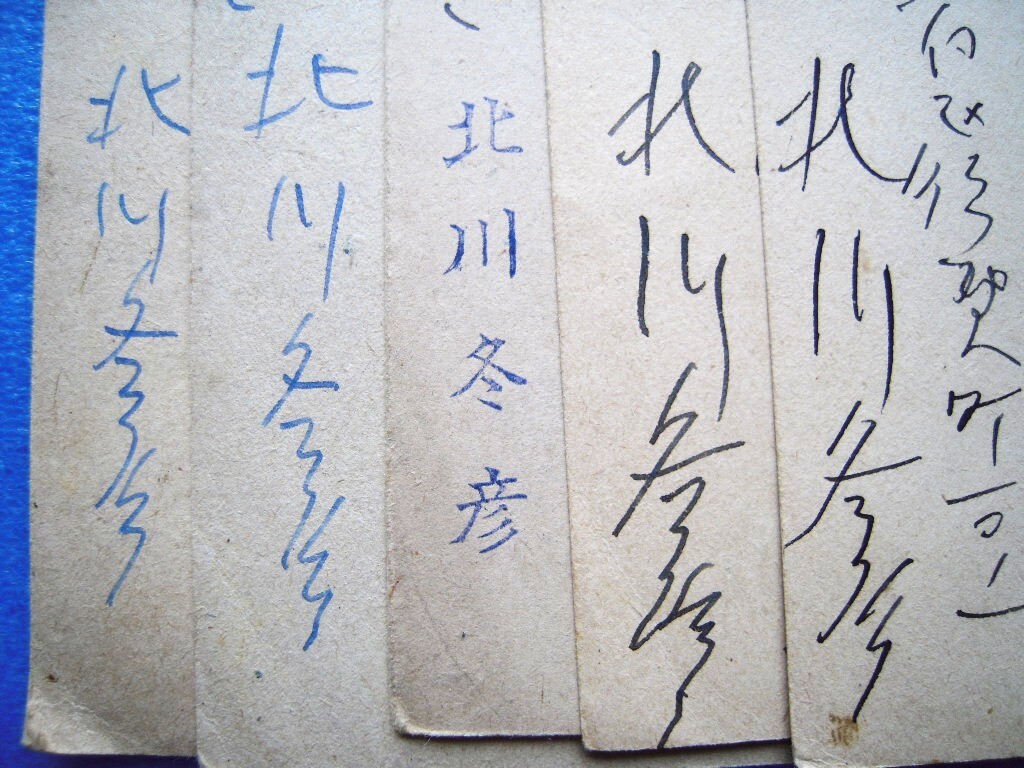 北川冬彦
北川冬彦
北川冬彦
北川冬彦
北川冬彦